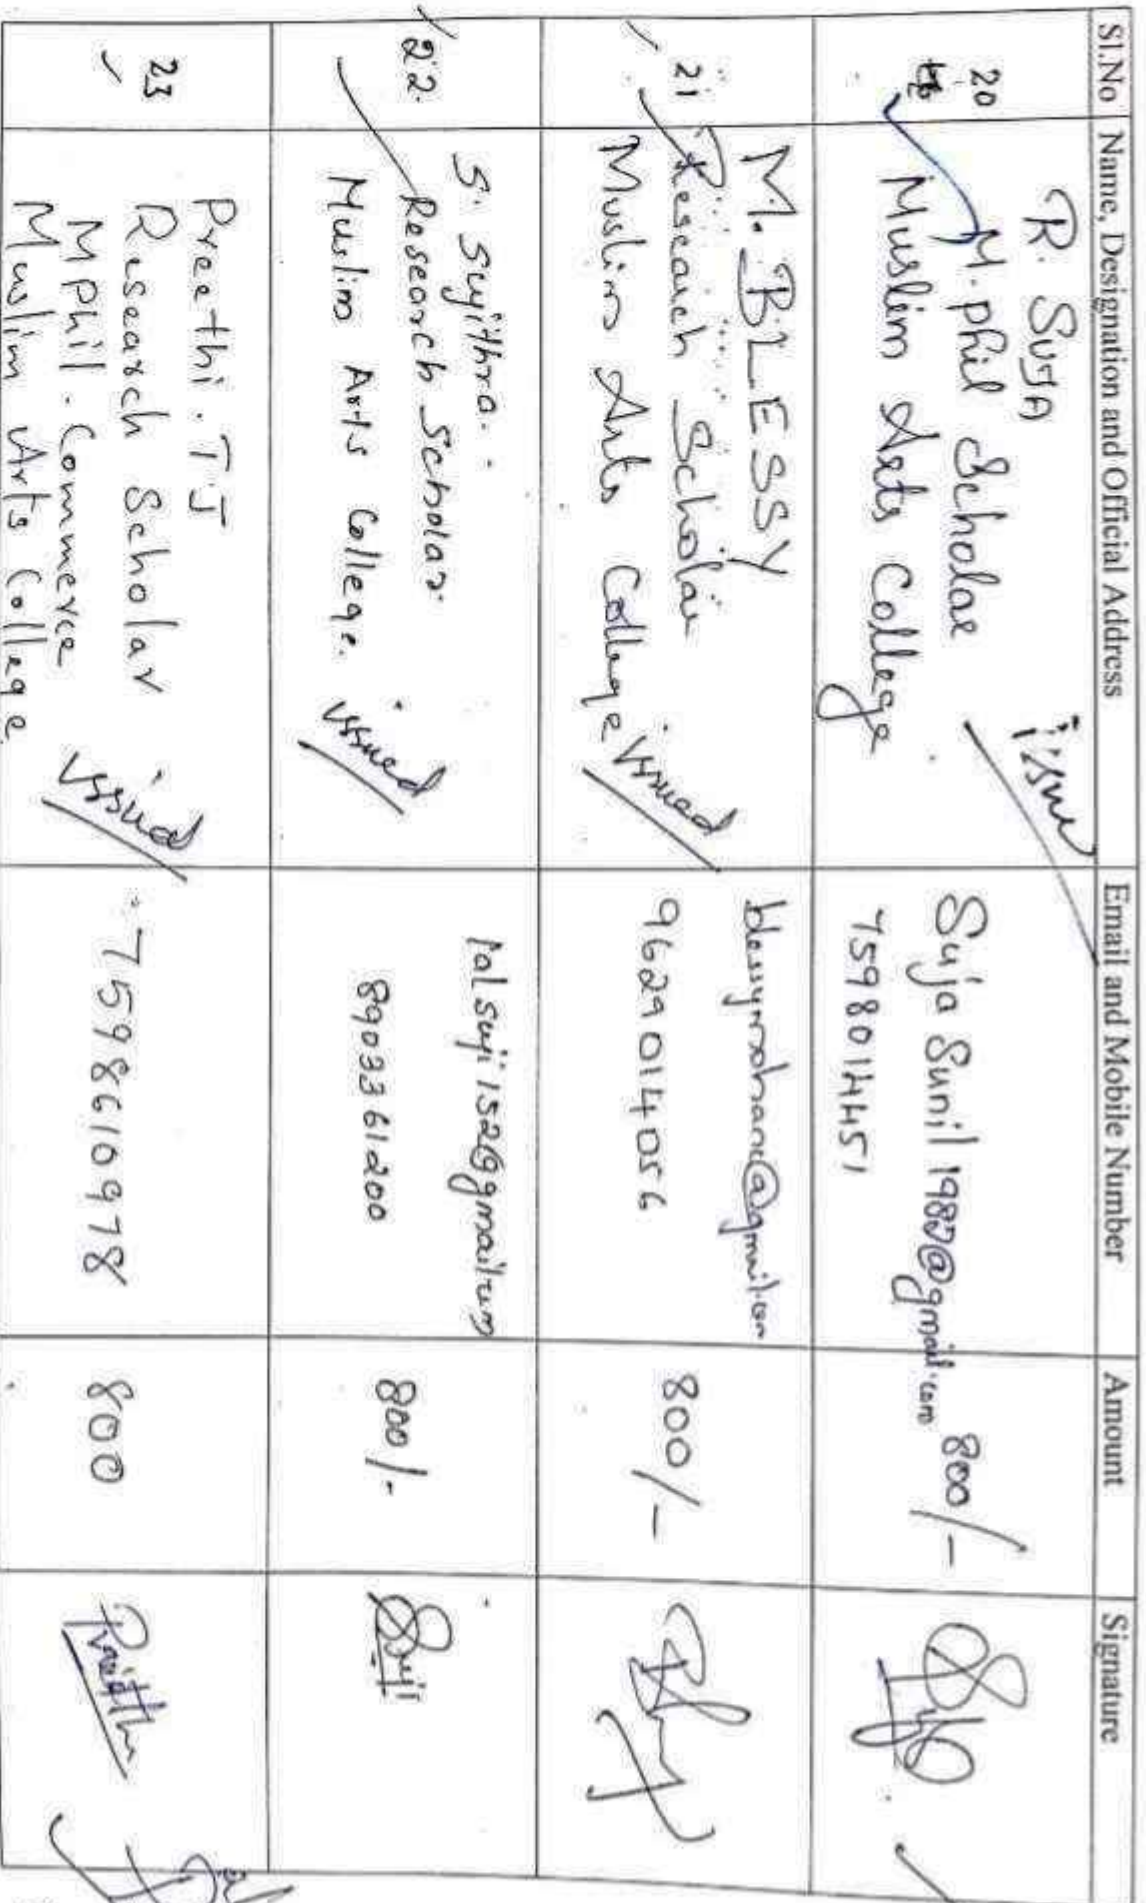 Sl.No Name, Designation and Official Address Email and Mobile Number Amount Signature
20
R. SUJA
M.phil Scholar
Muslim Arts College
issue
Suja Sunil 1982@gmail.com
7598014451
800/-
21
M. BLESSY
Research Scholar
Muslim Arts College
issued
blessymohanc@gmail.com
9629014056
800/-
22.
S. Sujithra.
Research Scholar.
Muslim Arts College.
issued
8903361200
800/-
Suji
23
Preethi. T.J
Research Scholar
M Phil. Commerce
Muslim Arts College
issued
7598610978
800
Preethi